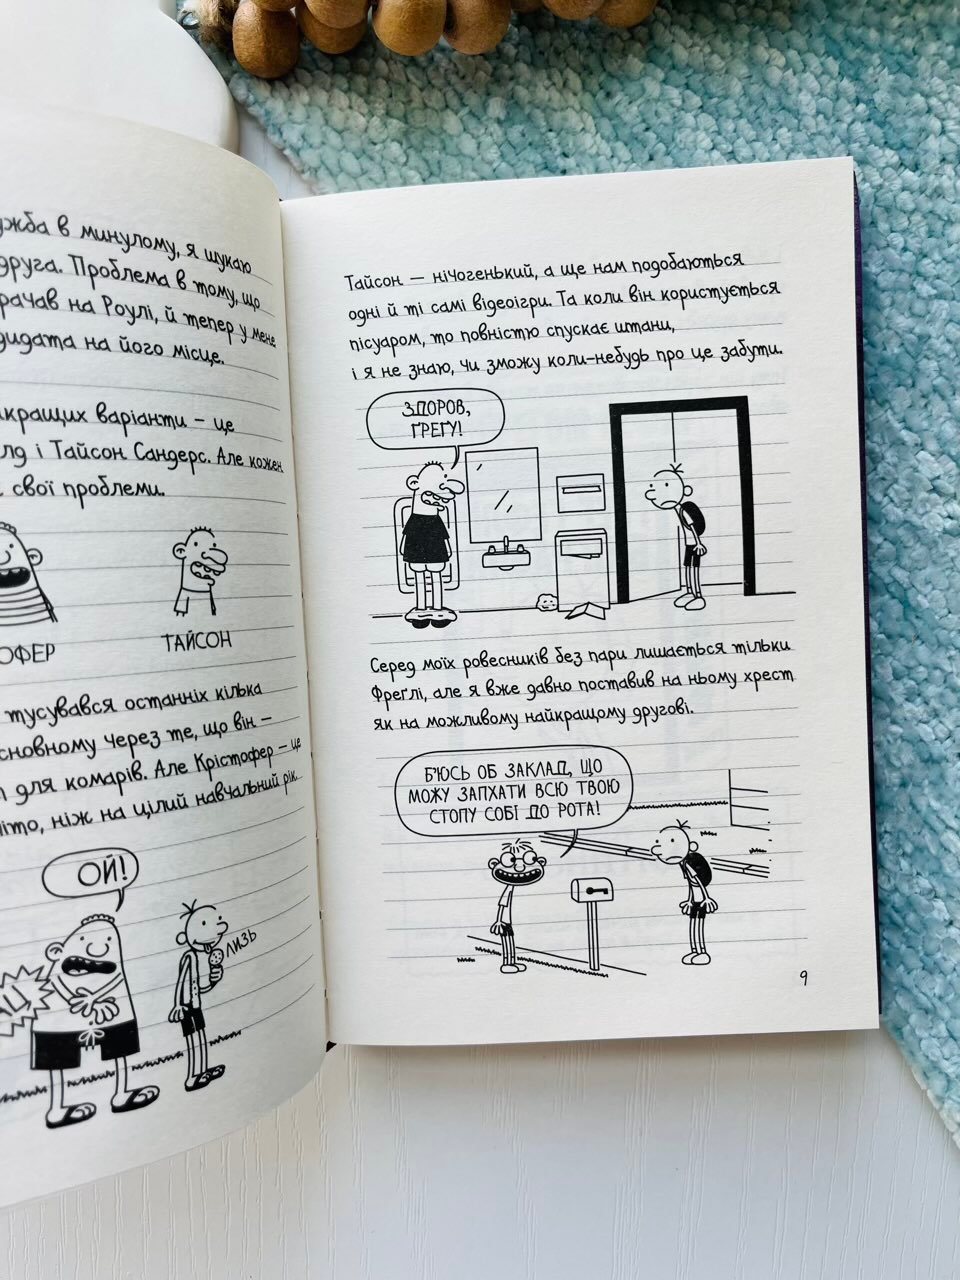 в минулому, я шукаю
друга. Проблема в тому, що
на Роулі, й тепер у мене
на його місце.
варіанти – це
і Тайсон Сандерс. Але кожен
свої проблеми.
ТАЙСОН
тусувався останніх кілька
через те, що він –
для комарів. Але Крістофер – це
ніж на цілий навчальний рік.
ОЙ!
ЛИЗЬ
Тайсон — нічогенький, а ще нам подобаються
одні й ті самі відеоігри. Та коли він користується
пісуаром, то повністю спускає штани,
і я не знаю, чи зможу коли-небудь про це забути.
ЗДОРОВ,
ҐРЕҐУ!
Серед моїх ровесників без пари лишається тільки
Фреґлі, але я вже давно поставив на ньому хрест
як на можливому найкращому другові.
Б'ЮСЬ ОБ ЗАКЛАД, ЩО
МОЖУ ЗАПХАТИ ВСЮ ТВОЮ
СТОПУ СОБІ ДО РОТА!
9